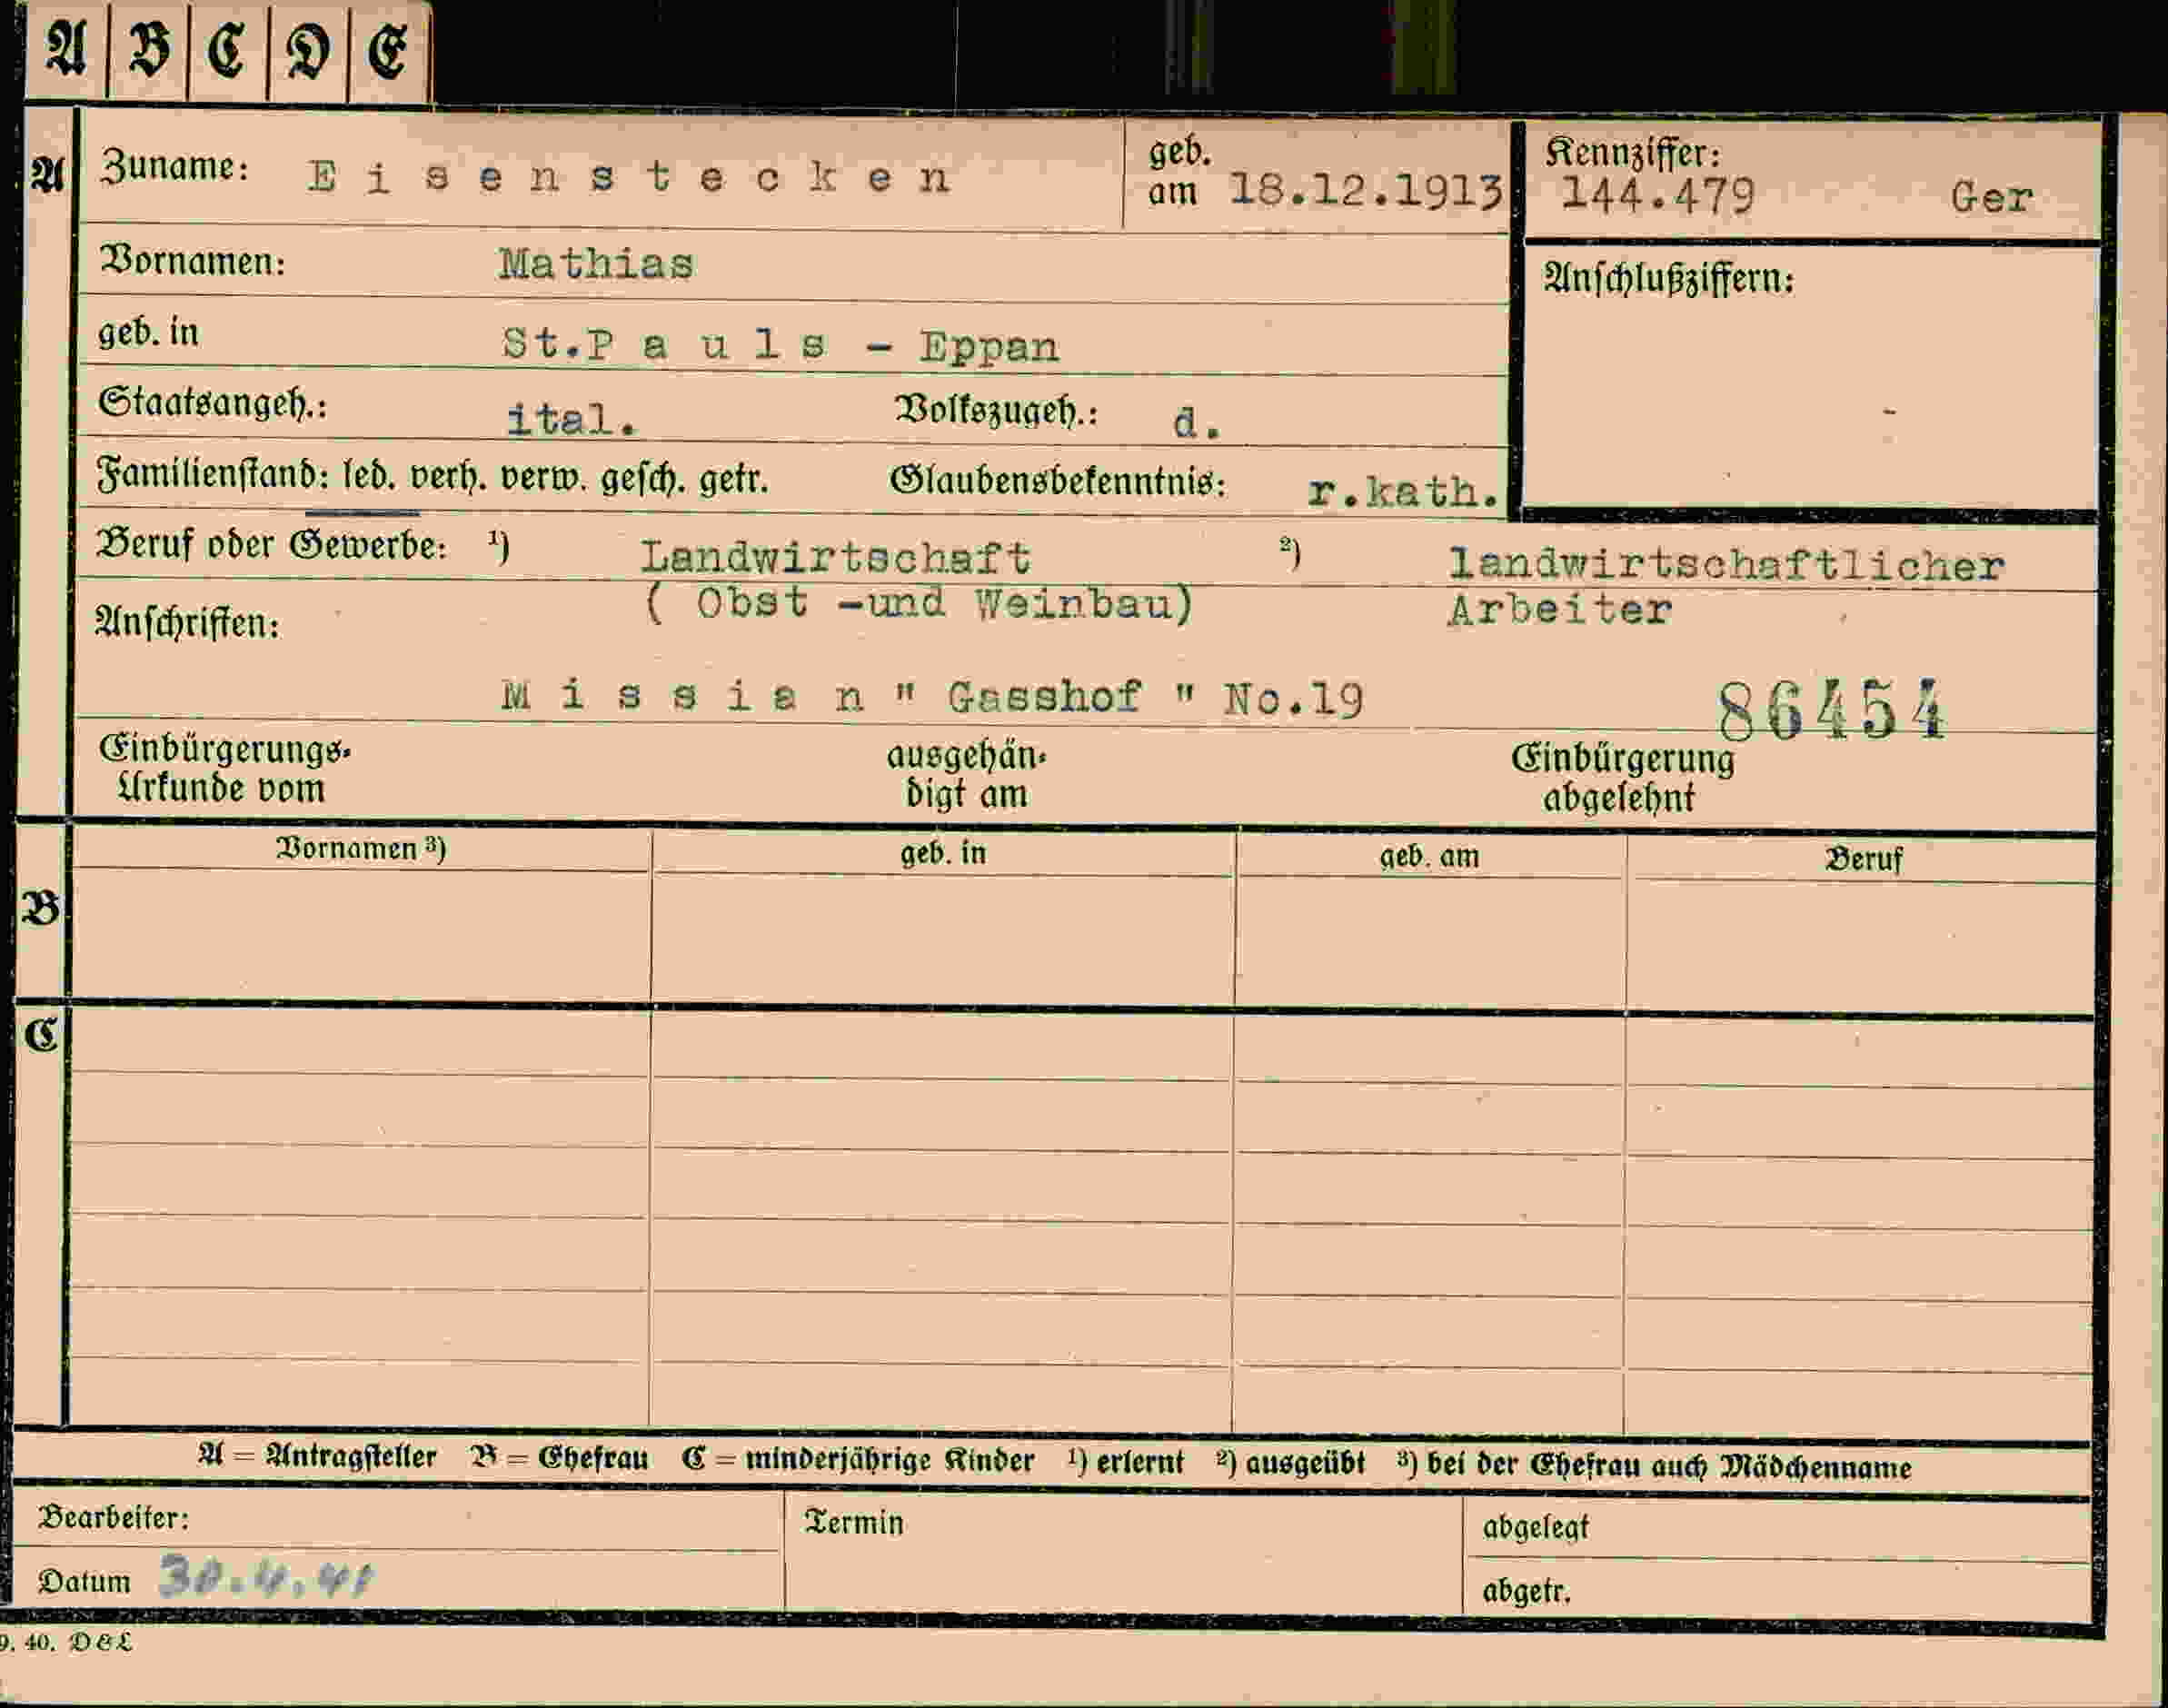 A B C D E
A Zuname: E i s e n s t e c k e n geb. am 18.12.1913 Kennziffer: 144.479 Ger
Vornamen: Mathias Anschlußziffern:
geb. in St.P a u l s - Eppan
Staatsangeh.: ital. Volkszugeh.: d. -
Familienstand: led. verh. verw. gesch. getr. Glaubensbekenntnis: r.kath.
Beruf oder Gewerbe: 1) Landwirtschaft 2) landwirtschaftlicher
( Obst -und Weinbau) Arbeiter
Anschriften:
M i s s i a n " Gasshof " No.19 86454
Einbürgerungs- ausgehän- Einbürgerung
Urkunde vom digt am abgelehnt
Vornamen 3) geb. in geb. am Beruf
B
C
A = Antragsteller B = Ehefrau C = minderjährige Kinder 1) erlernt 2) ausgeübt 3) bei der Ehefrau auch Mädchenname
Bearbeiter: Termin abgelegt
Datum 30.4.41 abgetr.
9. 40. D&L